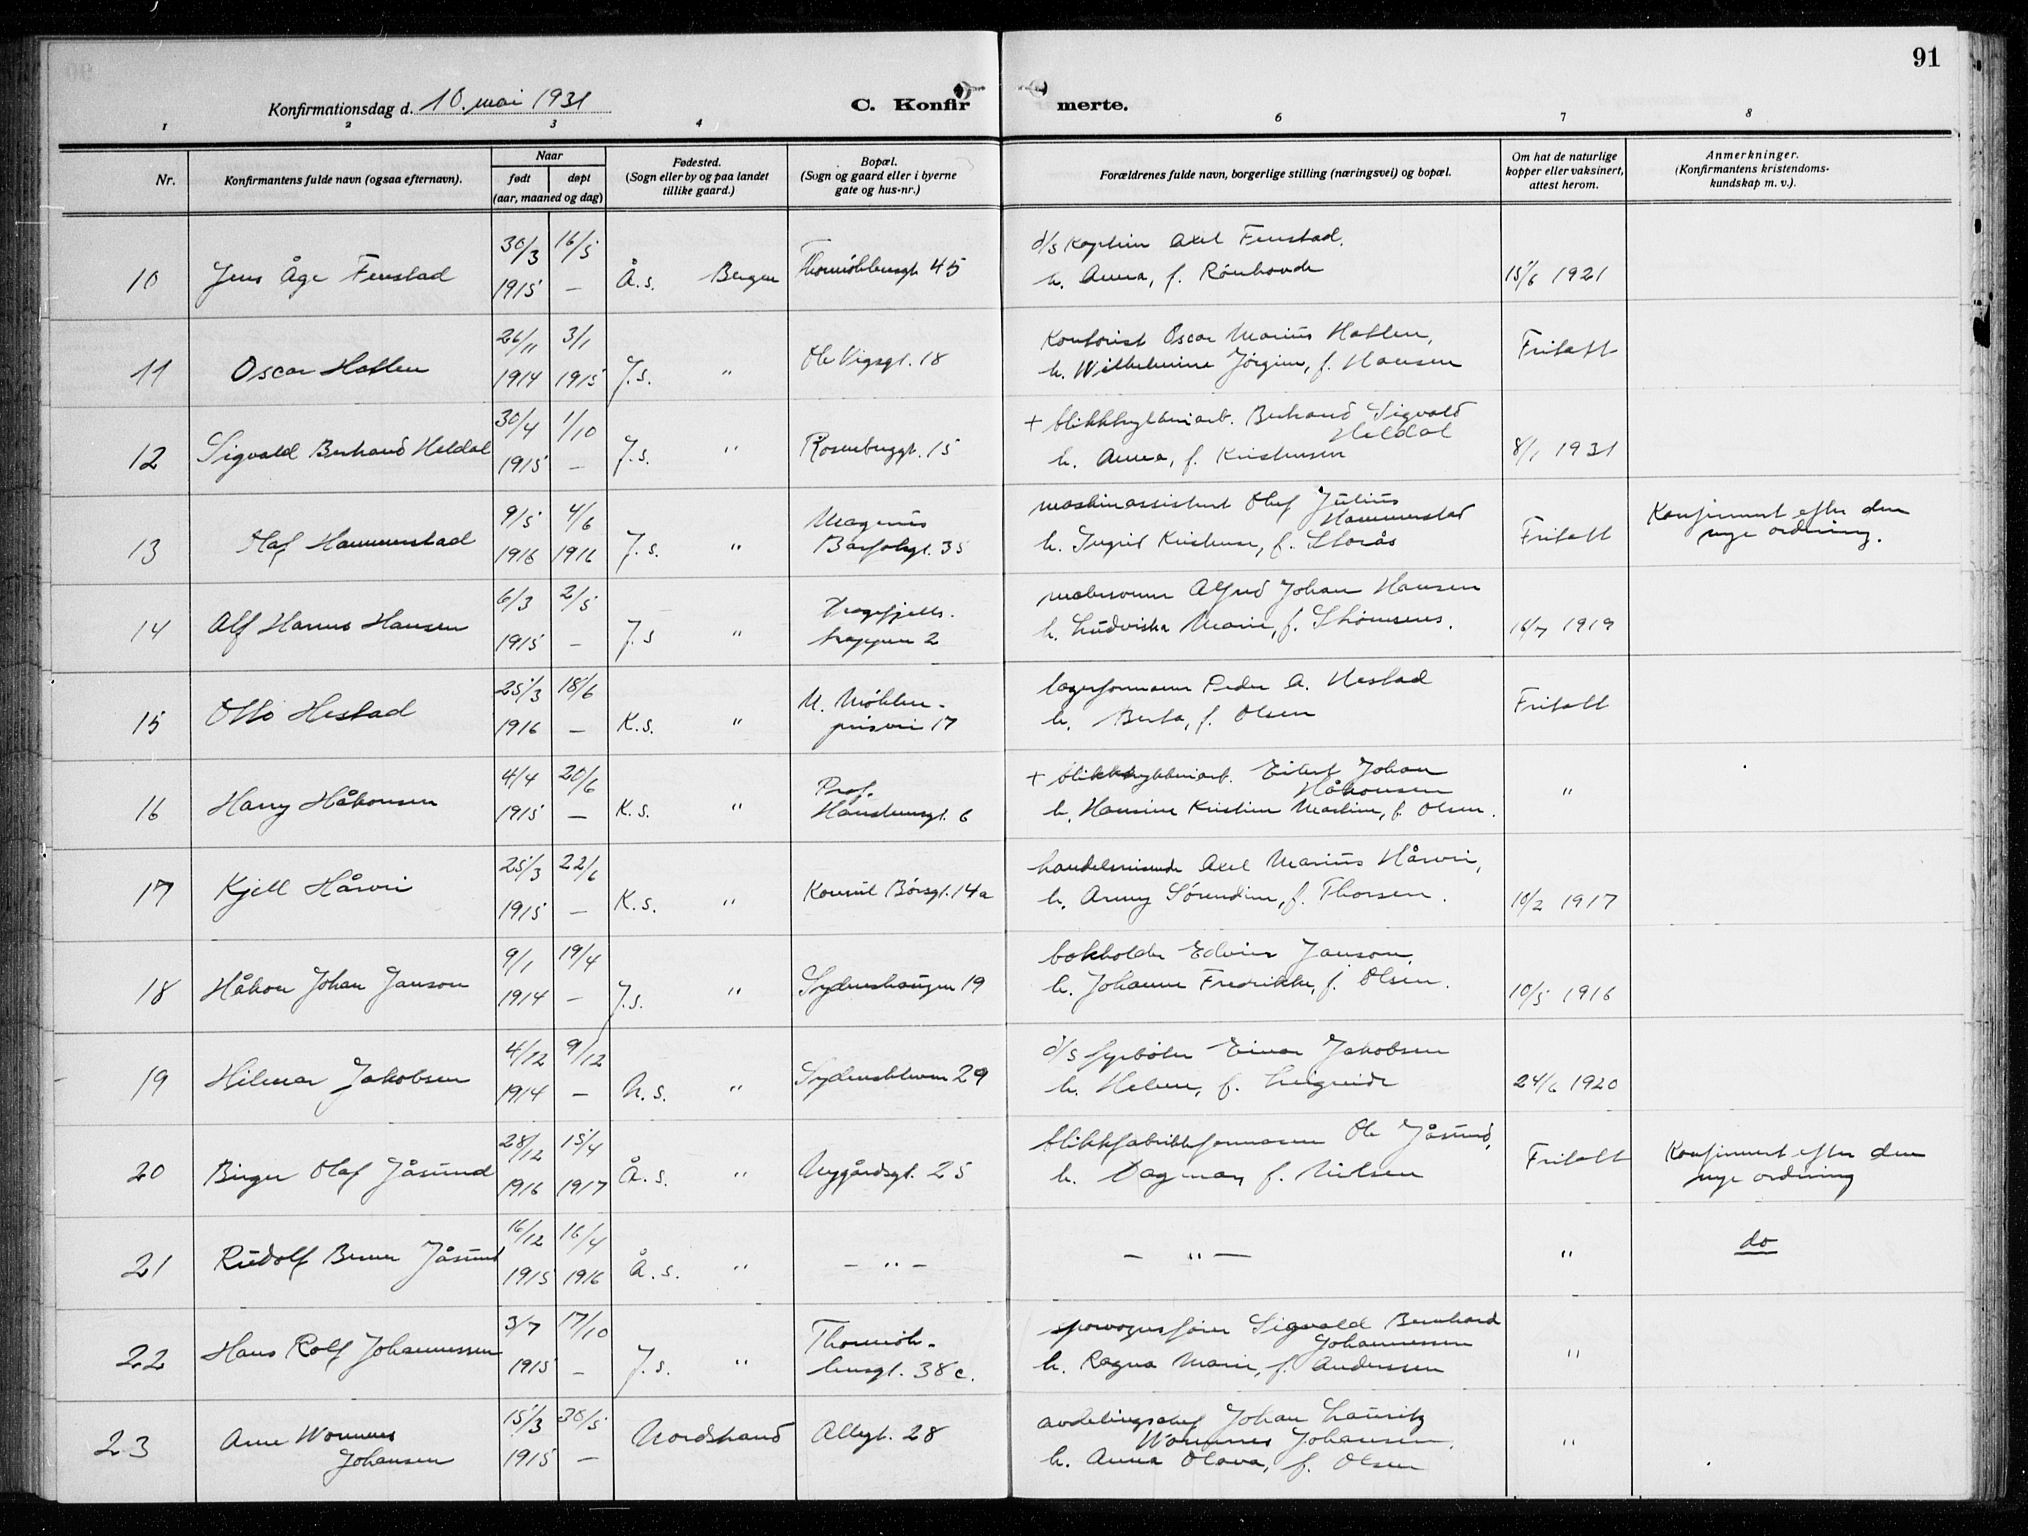 91
Konfirmationsdag d. 10. mai 1931
C. Konfirmerte.
1 2 3 4 6 7 8
Nr.
Konfirmantens fulde navn (ogsaa efternavn).
Naar
født døpt
(aar, maaned og dag)
Fødested.
(Sogn eller by og paa landet
tillike gaard.)
Bopæl.
(Sogn og gaard eller i byerne
gate og hus-nr.)
Forældrenes fulde navn, borgerlige stilling (næringsvei) og bopæl.
Om hat de naturlige
kopper eller vaksinert,
attest herom.
Anmerkninger.
(Konfirmantens kristendoms-
kundskap m. v.).
30/3 16/5 d/s Kaptein Axel Fenstad,
10 Jens Åge Fenstad 1915 — Å.s. Bergen Thormøhlensgt. 45 h. Anna, f. Rönhovde 15/6 1921
26/11 3/1 Kontorist Oscar Marius Hatlen,
11 Oscar Hatlen 1914 1915 J.s. " Ole Vigsgt. 18 h. Wilhelmine Jørgine, f. Hansen Fritatt
30/4 1/10 + blikktrykkeriarb. Berhand Sigvald
Heldal
12 Sigvald Berhand Heldal 1915 — J.s. " Rosenberggt. 15 h. Anna, f. Kristensen 8/1 1931
9/5 4/6 Magnus maskinassistent Olaf Julius
Hammerstad
Konfirmert efter den
13 Olaf Hammerstad 1916 1916 J.s. " Barfotsgt. 35 h. Ingrid Kristense, f. Storås Fritatt nye ordning.
6/3 2/5 Dragefjells- Alfred Johan Hansen
14 Alf Hannes Hansen 1915 — J.s " trappen 2 h. Ludviska Marie, f. Strömsnes. 16/7 1919
25/3 18/6 N. Møhlen- lagerformann Peder A. Hestad
15 Otto Hestad 1916 — K.s. " prisvei 17 h. Berta, f. Olsen Fritatt
4/4 20/6 Prof. + blikktrykkeriarb. Eilert Johan
Håkonsen
16 Harry Håkonsen 1915 — K.s. " Hansteensgt. 6 h. Hansine Kristine Martine, f. Olsen. "
25/3 22/6 handelsreisende Axel Marius Hårvei,
17 Kjell Hårvei 1915 — K.s. " Konsul Börsgt. 14a h. Anny Sörendine, f. Thorsen. 10/2 1917
9/1 19/4 bokholder Edvin Janson,
18 Håkon Johan Janson 1914 — J.s. " Sydneshaugen 19 h. Johanne Fredrikke, f. Olsen. 10/5 1916
4/12 9/12 d/s fyrböter Einar Jakobsen
19 Hilmar Jakobsen 1914 — N.s. " Sydneskleven 29 h. Helene, f. 24/6 1920
28/12 15/4 blikkfabrikkformann Ole Jåsund,
Konfirmert efter den
20 Birger Olaf Jåsund 1916 1917 Å.s. " Nygårdsgt. 25 h. Dagmar, f. Nilsen Fritatt nye ordning
16/12 16/4
21 Rudolf Jåsund 1915 1916 Å.s. " — " — — " — " do
3/7 17/10 Thormöh- sporvognsförer Sigvald Bernhard
Johannessen
22 Hans Rolf Johannessen 1915 — J.s. " lensgt. 38 c. h. Ragna Marie, f. Anderssen "
15/3 30/5 avdelingschef Johan Lauritz
23 Arne Wormnes
Johansen 1915 — Nordstrand Allegt. 28 Wormnes Johansen,
h. Anna Olava, f. Olsen "